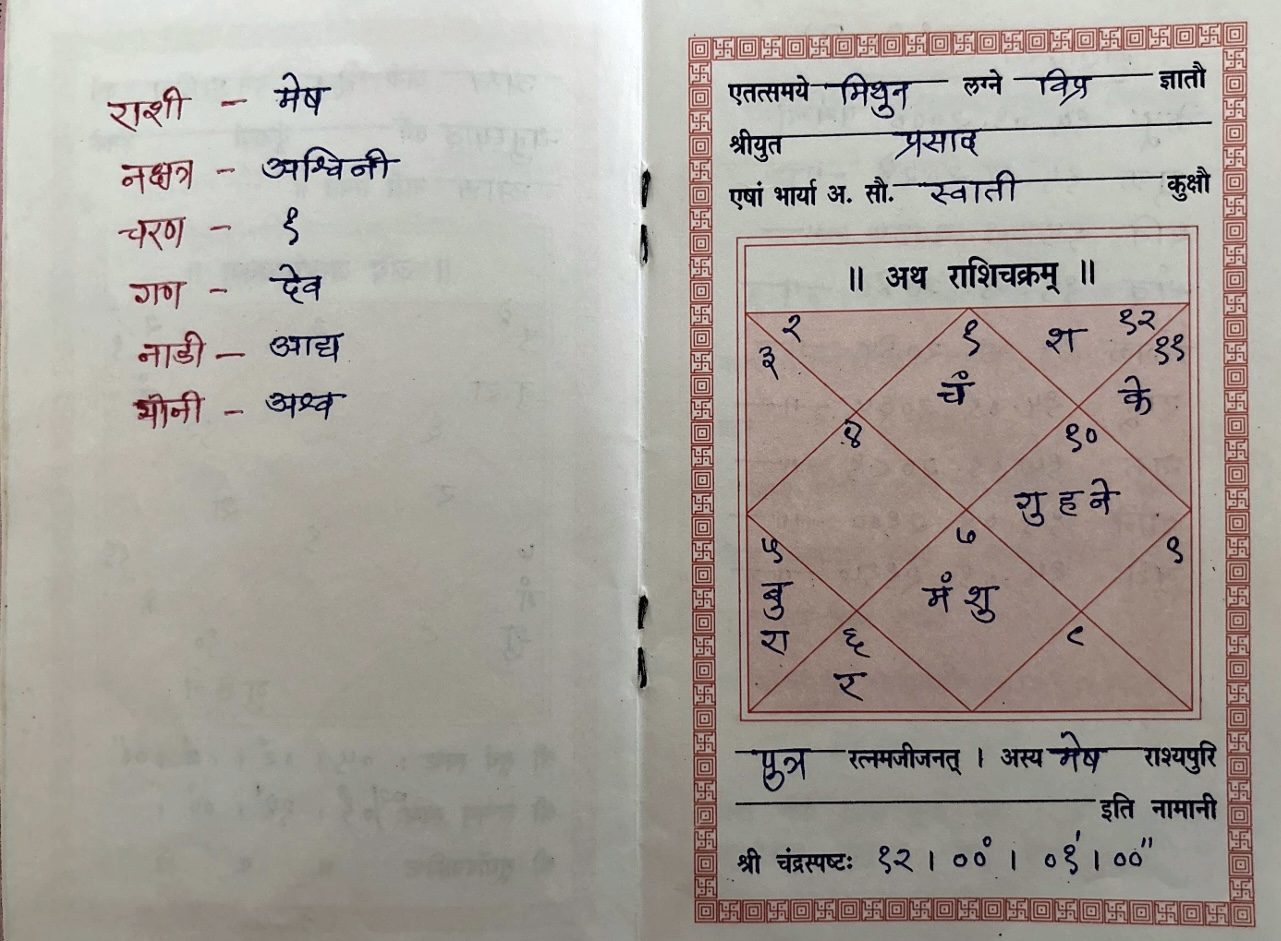 राशी - मेष
नक्षत्र - अश्विनी
चरण - १
गण - देव
नाडी - आद्य
योनी - अश्व
एतत्समये मिथुन लग्ने विप्र ज्ञातौ
श्रीयुत प्रसाद
एषां भार्या अ. सौ. स्वाती कुक्षौ
॥ अथ राशिचक्रम् ॥
२
३
१
चं
श
१२
११
के
४
१०
गु ह ने
५
बु
रा
७
मं शु
९
६
र
८
पुत्र रत्नमजीजनत् । अस्य मेष राश्यपुरि
इति नामानी
श्री चंद्रस्पष्टः १२ । ००° । ०१' । ००"